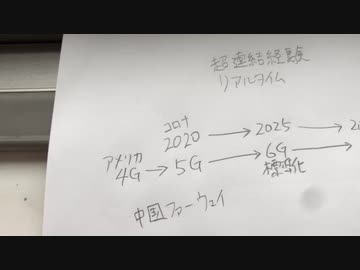 超連結経験
リアルタイム
コロナ
2020 → 2025 →
アメリカ
4G → 5G → 6G →
標準化
中国ファーウェイ